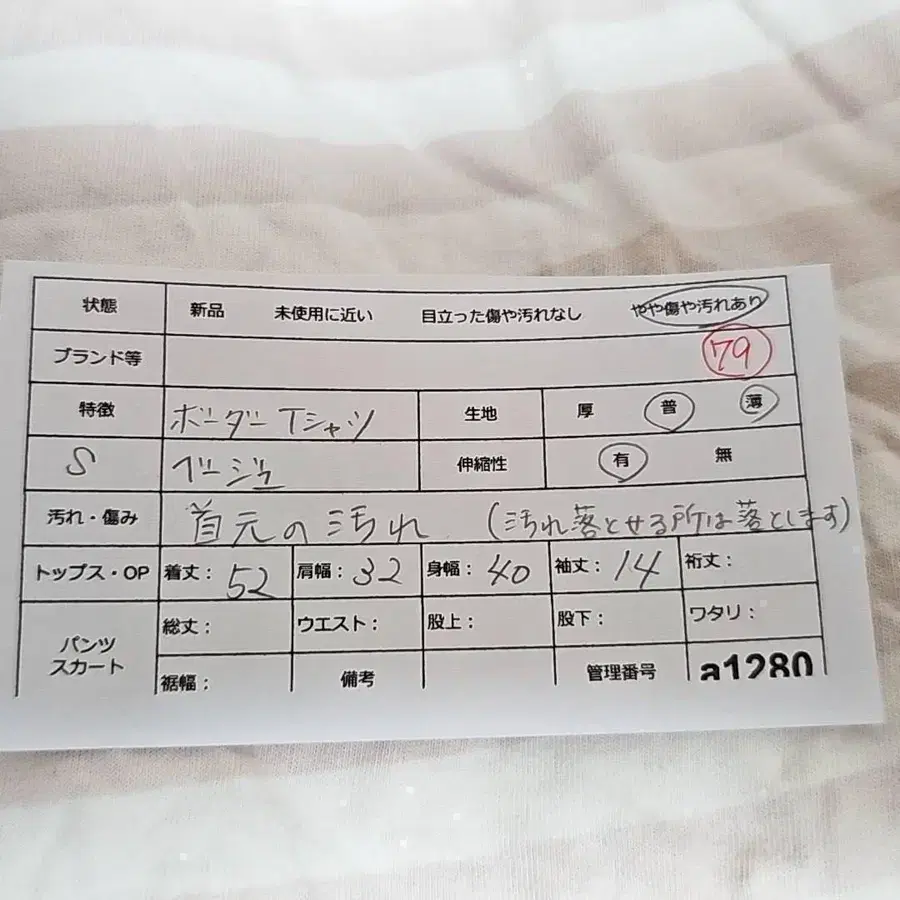 状態 新品 未使用に近い 目立った傷や汚れなし やや傷や汚れあり
ブランド等 79
特徴 ボーダーTシャツ 生地 厚 普 薄
S ベージュ 伸縮性 有 無
汚れ・傷み 首元の汚れ (汚れ落とせる所は落とします)
トップス・OP 着丈: 52 肩幅: 32 身幅: 40 袖丈: 14 裄丈:
パンツ スカート 総丈: ウエスト: 股上: 股下: ワタリ:
裾幅: 備考 管理番号 a1280